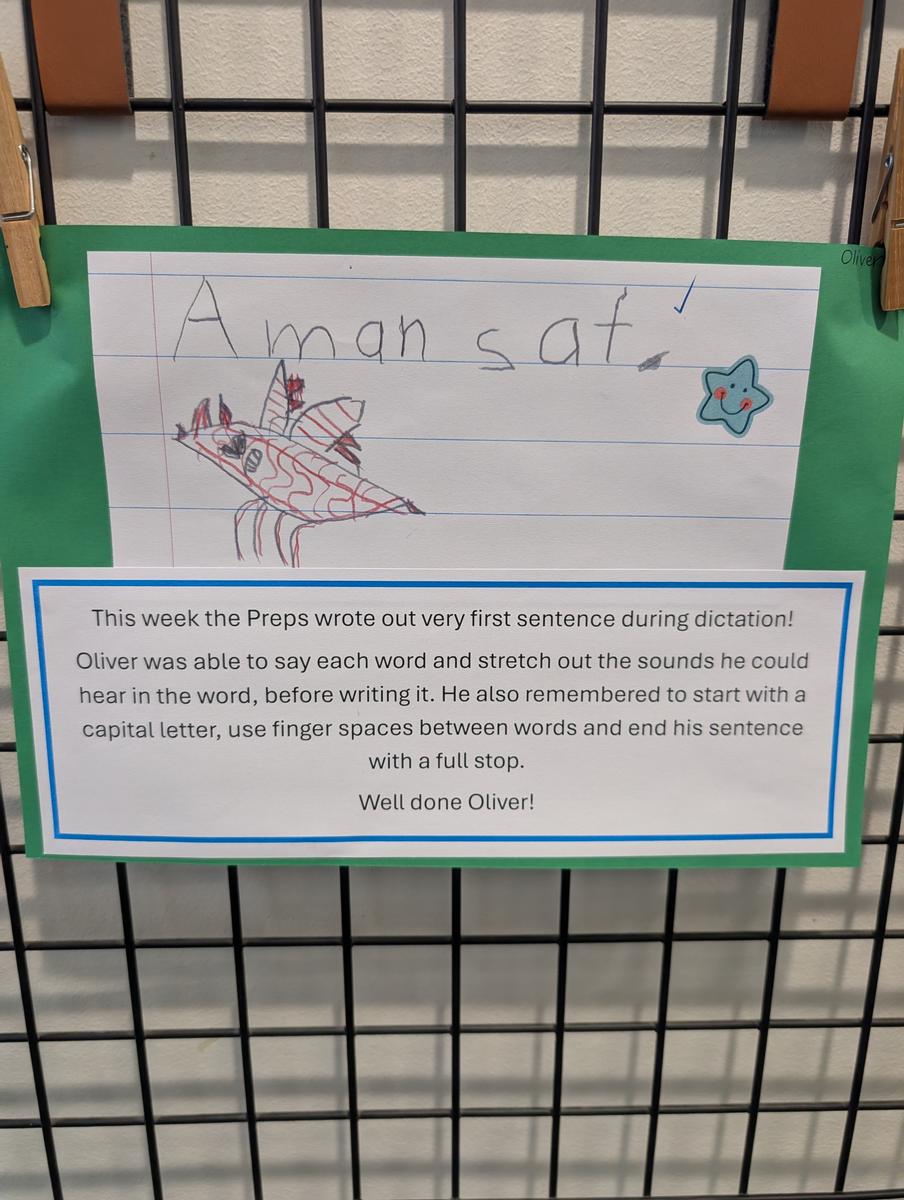 Oliver
A man sat.
This week the Preps wrote out very first sentence during dictation!
Oliver was able to say each word and stretch out the sounds he could
hear in the word, before writing it. He also remembered to start with a
capital letter, use finger spaces between words and end his sentence
with a full stop.
Well done Oliver!